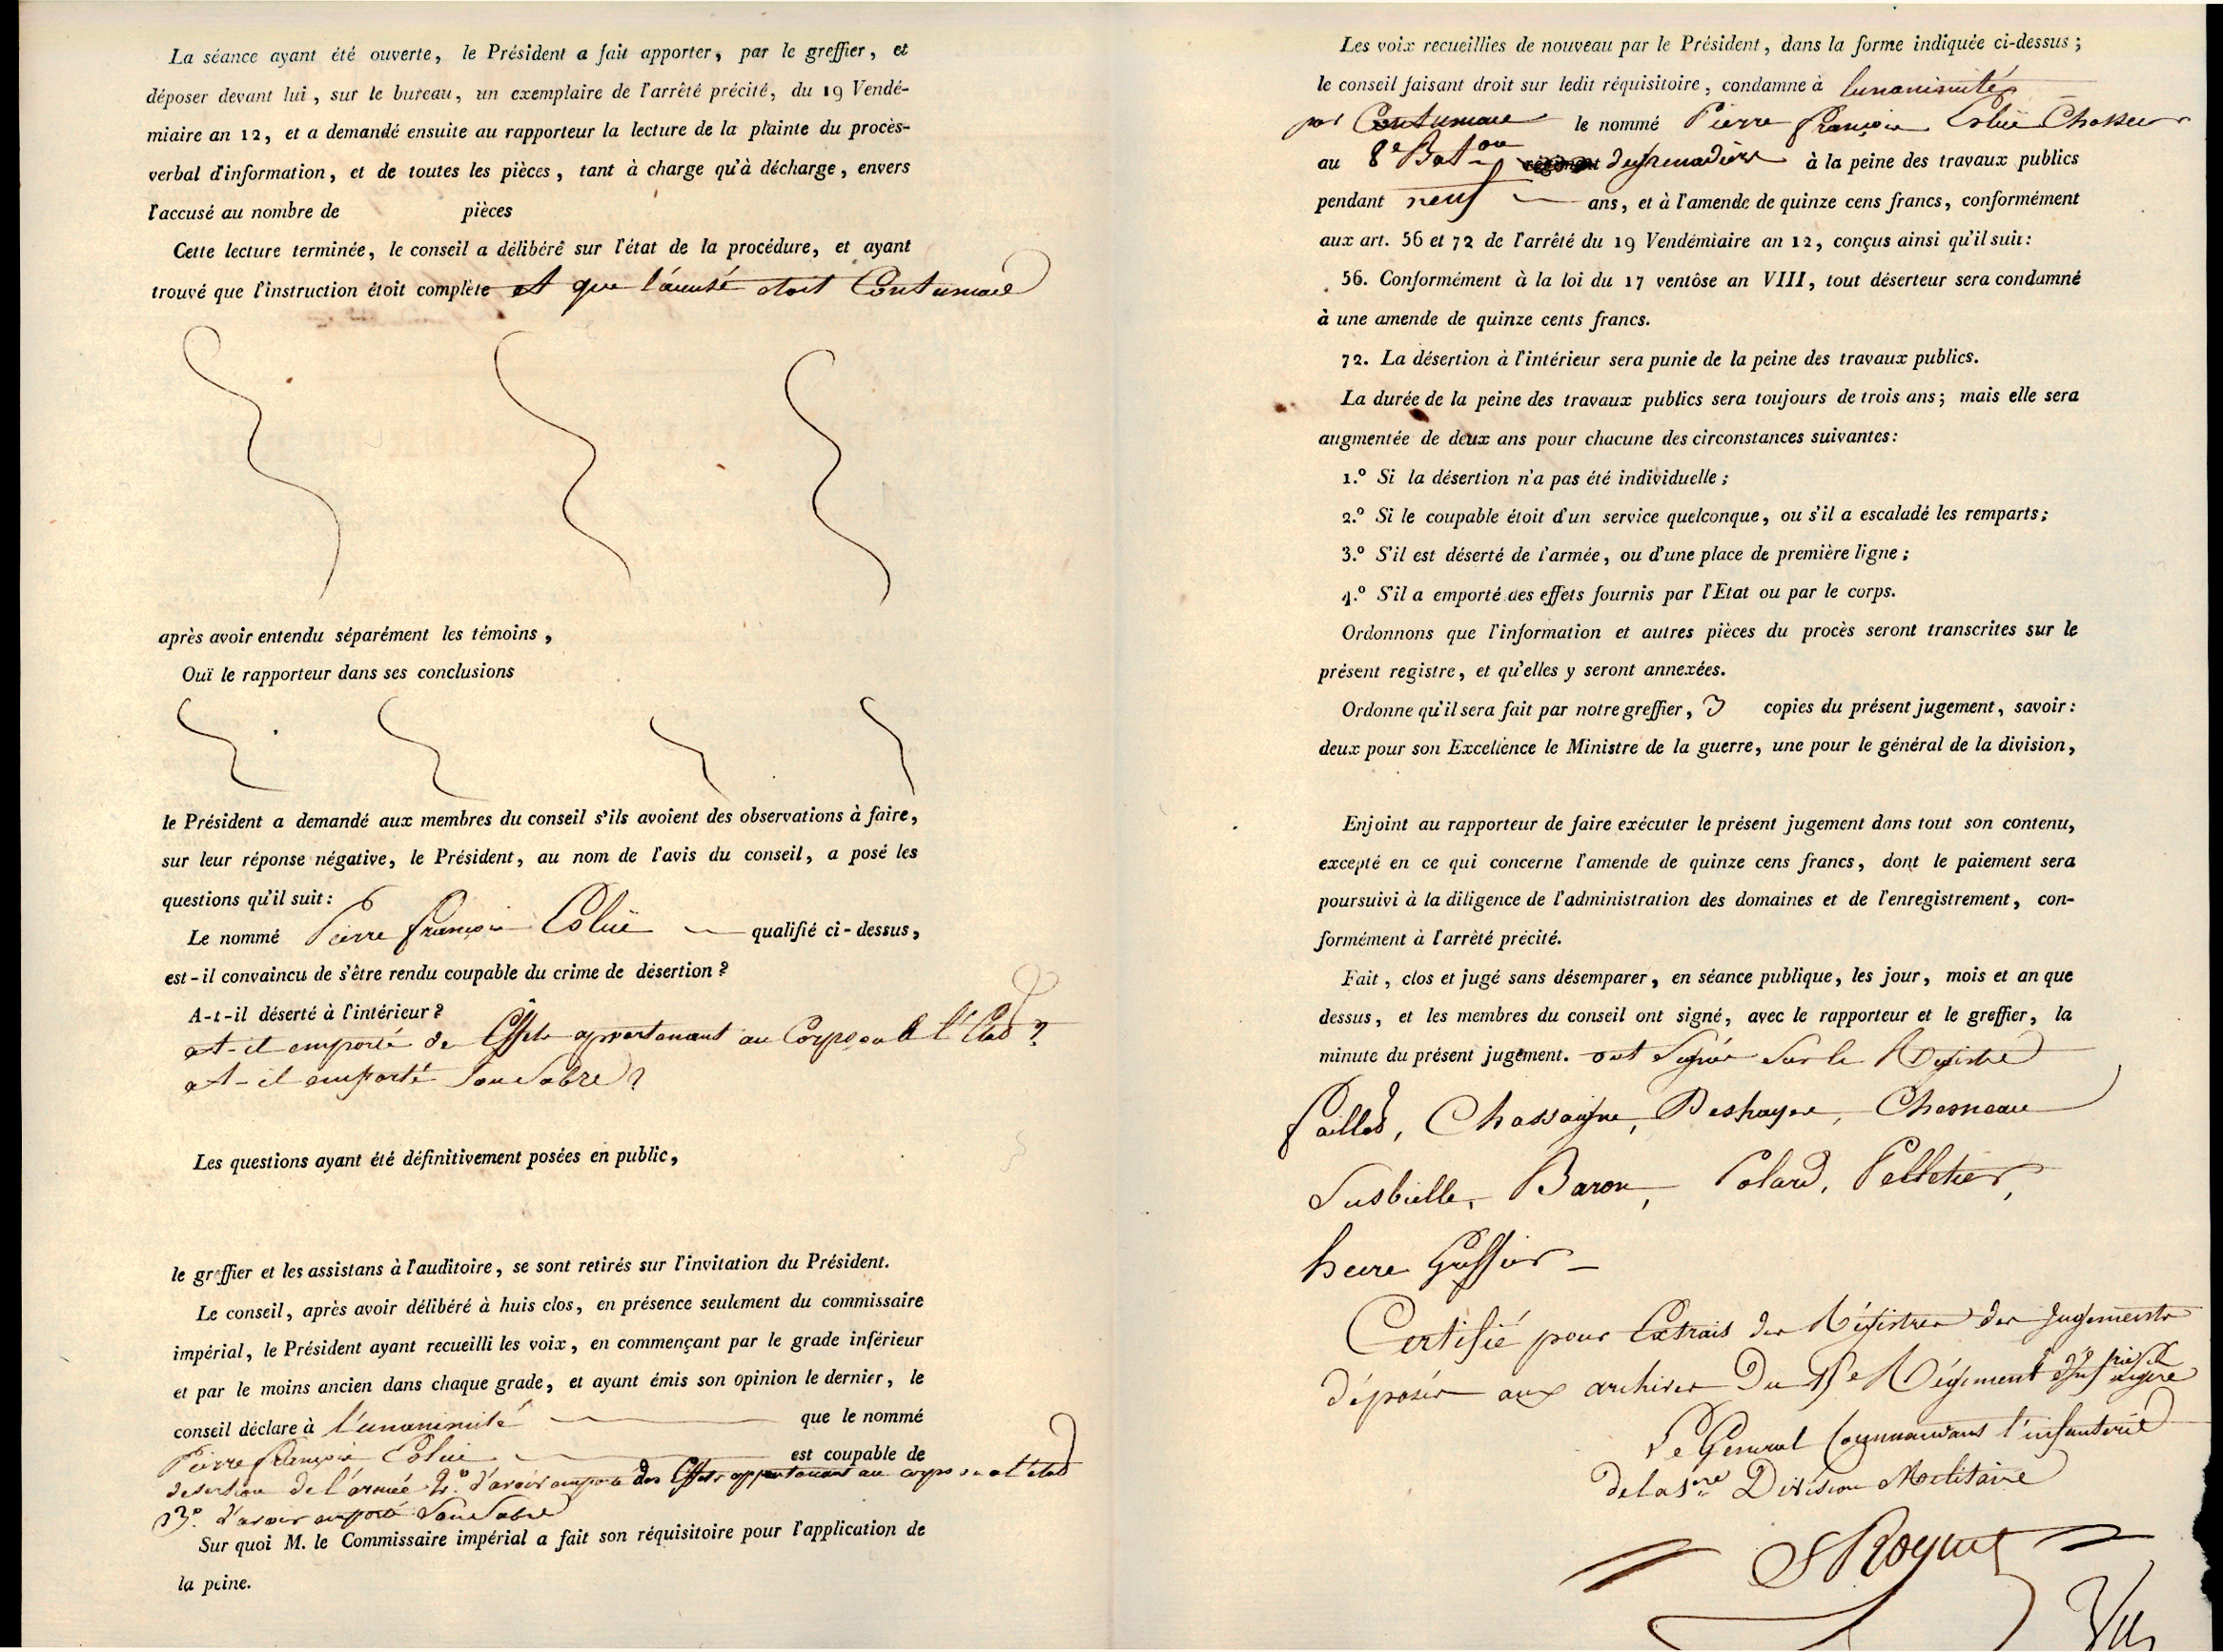 La séance ayant été ouverte, le Président a fait apporter, par le greffier, et
déposer devant lui, sur le bureau, un exemplaire de l'arrêté précité, du 19 Vendé-
miaire an 12, et a demandé ensuite au rapporteur la lecture de la plainte du procès-
verbal d'information, et de toutes les pièces, tant à charge qu'à décharge, envers
l'accusé au nombre de pièces
Cette lecture terminée, le conseil a délibéré sur l'état de la procédure, et ayant
trouvé que l'instruction étoit complète et que l'accusé étoit Contumace
après avoir entendu séparément les témoins,
Ouï le rapporteur dans ses conclusions
le Président a demandé aux membres du conseil s'ils avoient des observations à faire,
sur leur réponse négative, le Président, au nom de l'avis du conseil, a posé les
questions qu'il suit:
Le nommé Pierre françois qualifié ci-dessus,
est-il convaincu de s'être rendu coupable du crime de désertion?
A-t-il déserté à l'intérieur?
at-il emporté des Effets appartenant au Corps ou à l'Etat?
at-il emporté Son Sabre?
Les questions ayant été définitivement posées en public,
le greffier et les assistans à l'auditoire, se sont retirés sur l'invitation du Président.
Le conseil, après avoir délibéré à huis clos, en présence seulement du commissaire
impérial, le Président ayant recueilli les voix, en commençant par le grade inférieur
et par le moins ancien dans chaque grade, et ayant émis son opinion le dernier, le
conseil déclare à l'unanimité que le nommé
Pierre françois est coupable de
desertion de l'armée 2.° d'avoir emporté des Effets appartenant au corps ou a l'etat
3.° d'avoir emporté Son Sabre
Sur quoi M. le Commissaire impérial a fait son réquisitoire pour l'application de
la peine.
Les voix recueillies de nouveau par le Président, dans la forme indiquée ci-dessus;
le conseil faisant droit sur ledit réquisitoire, condamne à l'unanimité
par Contumace le nommé Pierre françois Chasseur
au 8e Baton régiment de grenadiers à la peine des travaux publics
pendant neuf ans, et à l'amende de quinze cens francs, conformément
aux art. 56 et 72 de l'arrêté du 19 Vendémiaire an 12, conçus ainsi qu'il suit:
56. Conformément à la loi du 17 ventôse an VIII, tout déserteur sera condamné
à une amende de quinze cents francs.
72. La désertion à l'intérieur sera punie de la peine des travaux publics.
La durée de la peine des travaux publics sera toujours de trois ans; mais elle sera
augmentée de deux ans pour chacune des circonstances suivantes:
1.° Si la désertion n'a pas été individuelle;
2.° Si le coupable étoit d'un service quelconque, ou s'il a escaladé les remparts;
3.° S'il est déserté de l'armée, ou d'une place de première ligne;
4.° S'il a emporté des effets fournis par l'Etat ou par le corps.
Ordonnons que l'information et autres pièces du procès seront transcrites sur le
présent registre, et qu'elles y seront annexées.
Ordonne qu'il sera fait par notre greffier, 3 copies du présent jugement, savoir:
deux pour son Excellence le Ministre de la guerre, une pour le général de la division,
Enjoint au rapporteur de faire exécuter le présent jugement dans tout son contenu,
excepté en ce qui concerne l'amende de quinze cens francs, dont le paiement sera
poursuivi à la diligence de l'administration des domaines et de l'enregistrement, con-
formément à l'arrêté précité.
Fait, clos et jugé sans désemparer, en séance publique, les jour, mois et an que
dessus, et les membres du conseil ont signé, avec le rapporteur et le greffier, la
minute du présent jugement. ont Signés Sur le Registre
Chassaigne, Deshayes, Chesneau
Susbielle, Baron, Polard, Pelletier,
Greffier
Certifié pour Extrait des Régistres des Jugements
déposés aux archives Du Régiment
Le General Commandant l'infanterie
de la 1ere Division Militaire